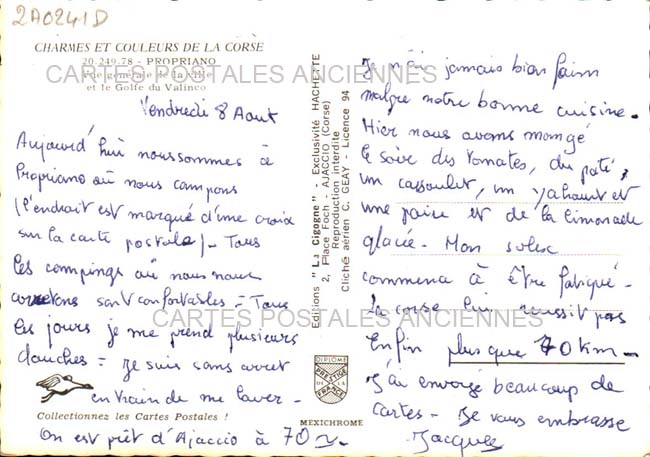 2A0241D
CHARMES ET COULEURS DE LA CORSE
20.249.78 - PROPRIANO
Vue générale de la ville
et le Golfe du Valinco
CARTES POSTALES ANCIENNES
Vendredi 8 Aout
Aujourd'hui nous sommes à
Propriano où nous campons
(l'endroit est marqué d'une croix
sur la carte postale) - Tous
les campings où nous nous
arretons sont confortables - Tous
les jours je me prend plusieurs
douches - Je suis sans arret
en train de me laver -
Collectionnez les Cartes Postales !
On est prêt d'Ajaccio à 70
Editions "La Cigogne" - Exclusivité HACHETTE
2, Place Foch - AJACCIO (Corse)
Reproduction interdite
Cliché aérien C. GEAY - Licence 94
DIPLOME
PRESTIGE
DE LA
FRANCE
MEXICHROME
Je n'ai jamais bien faim
malgre notre bonne cuisine -
Hier nous avons mangé
le soire des tomates, du paté,
un cassoulet, un yahourt et
une paire et de la limonade
glacée - Mon solex
commena à être fatigué -
La corse lui reussit pas
CARTES POSTALES ANCIENNES
Enfin plus que 70 km -
J'ai envoyé beaucoup de
cartes - Je vous embrasse
Jacques